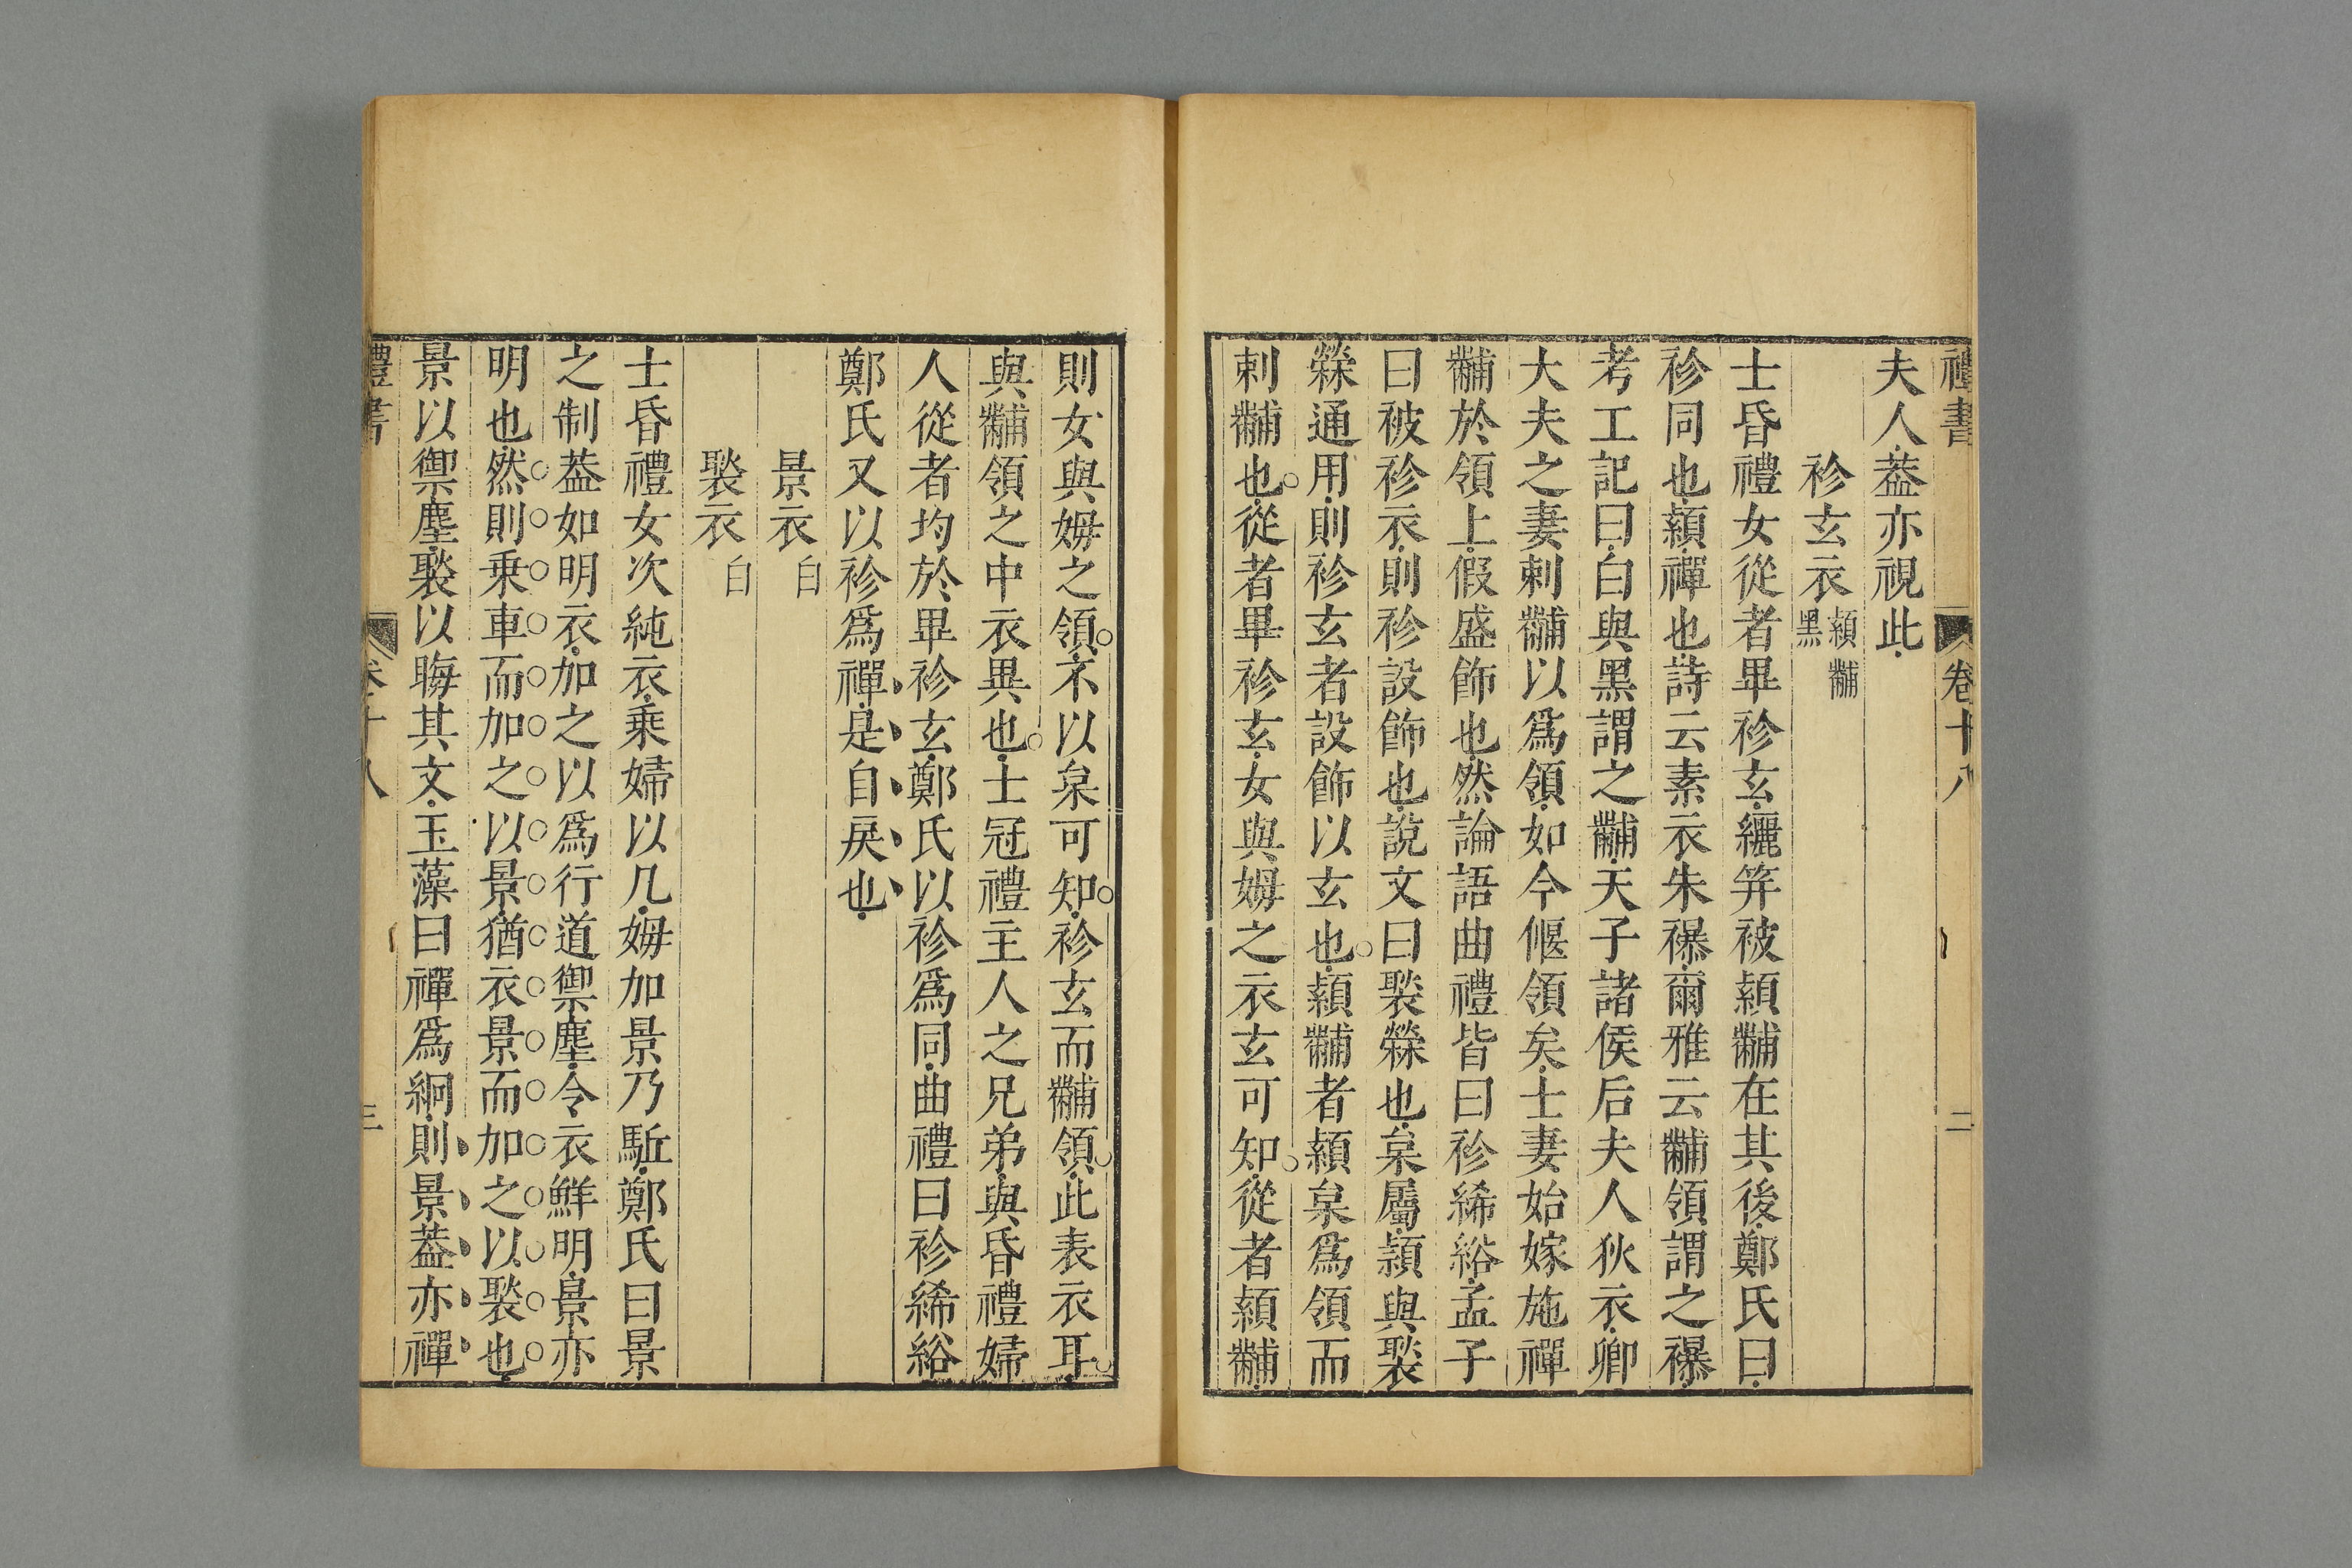 禮書 卷十八 二
夫人蓋亦視此
袗玄衣 潁黼 黑
士昏禮女從者畢袗玄纚笄被潁黼在其後鄭氏曰
袗同也潁禪也詩云素衣朱襮爾雅云黼領謂之襮
考工記曰白與黑謂之黼天子諸侯后夫人狄衣卿
大夫之妻刺黼以爲領如今偃領矣士妻始嫁施禪
黼於領上假盛飾也然論語曲禮皆曰袗絺綌孟子
曰被袗衣則袗設飾也說文曰褧檾也枲屬潁與褧
檾通用則袗玄者設飾以玄也潁黼者潁枲爲領而
刺黼也從者畢袗玄女與姆之衣玄可知從者潁黼
則女與姆之領不以枲可知袗玄而黼領此表衣耳
與黼領之中衣異也士冠禮主人之兄弟與昏禮婦
人從者均於畢袗玄鄭氏以袗爲同曲禮曰袗絺綌
鄭氏又以袗爲禪是自戾也
景衣 白
褧衣 白
士昏禮女次純衣乘婦以几姆加景乃駈鄭氏曰景
之制葢如明衣加之以爲行道禦塵令衣鮮明景亦
明也然則乗車而加之以景猶衣景而加之以褧也
景以禦塵褧以晦其文玉藻曰禪爲絅則景葢亦禪
禮書 卷十八 三